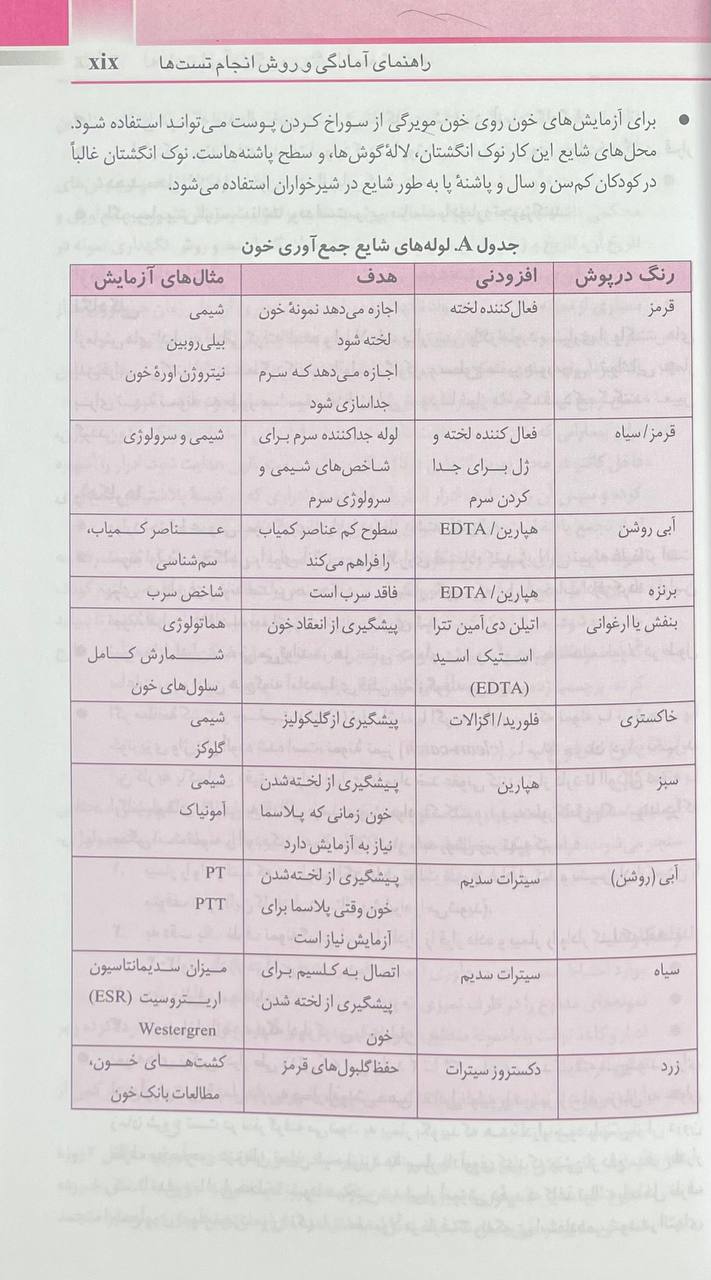 راهنمای آمادگی و روش انجام تست‌ها xix
● برای آزمایش‌های خون روی خون مویرگی از سوراخ کردن پوست می‌تواند استفاده شود.
محل‌های شایع این کار نوک انگشتان، لالهٔ گوش‌ها، و سطح پاشنه‌هاست. نوک انگشتان غالباً
در کودکان کم‌سن و سال و پاشنهٔ پا به طور شایع در شیرخواران استفاده می‌شود.
جدول A. لوله‌های شایع جمع‌آوری خون
رنگ درپوش افزودنی هدف مثال‌های آزمایش
قرمز فعال‌کننده لخته اجازه می‌دهد نمونهٔ خون شیمی
لخته شود بیلی‌روبین
اجازه می‌دهد که سرم نیتروژن اورهٔ خون
جداسازی شود
قرمز/سیاه فعال کننده لخته و لوله جداکننده سرم برای شیمی و سرولوژی
ژل برای جدا شاخص‌های شیمی و
کردن سرم سرولوژی سرم
آبی روشن هپارین/ EDTA سطوح کم عناصر کمیاب عناصر کمیاب،
را فراهم می‌کند سم‌شناسی
برنزه هپارین/ EDTA فاقد سرب است شاخص سرب
بنفش یا ارغوانی اتیلن دی‌آمین تترا پیشگیری از انعقاد خون هماتولوژی
استیک اسید شمارش کامل
(EDTA) سلول‌های خون
خاکستری فلورید/اگزالات پیشگیری از گلیکولیز شیمی
گلوکز
سبز هپارین پیشگیری از لخته‌شدن شیمی
خون زمانی که پلاسما آمونیاک
نیاز به آزمایش دارد
آبی (روشن) سیترات سدیم پیشگیری از لخته‌شدن PT
خون وقتی پلاسما برای PTT
آزمایش نیاز است
سیاه سیترات سدیم اتصال به کلسیم برای میزان سدیمانتاسیون
پیشگیری از لخته شدن اریتروسیت (ESR)
خون Westergren
زرد دکستروز سیترات حفظ گلبول‌های قرمز کشت‌های خون،
مطالعات بانک خون